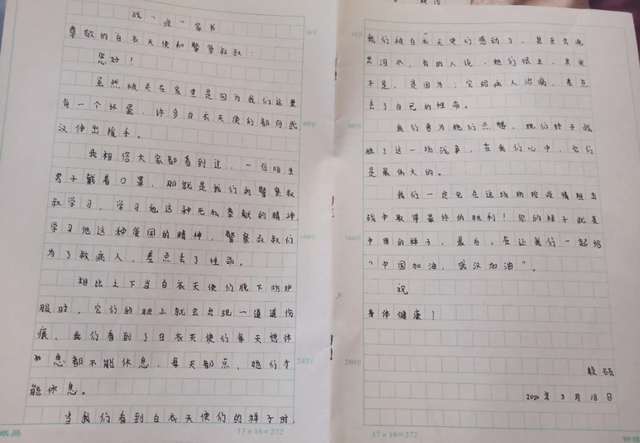 战"疫"家书
尊敬的白衣天使和警察叔叔:
您好!
虽然被关在家里是因为我们这里
有一个坏蛋,许多白衣天使们都向武
汉伸出援手。
我相信大家都看到过,一位陌生
男子戴着口罩,那就是我们向警察叔
叔学习,学习他这种无私奉献的精神
学习他这种爱国的精神,警察叔叔们
为了救病人,差点丢了性命。
相比之下当白衣天使们脱下防护
服时,它们的脸上就会出现一道道伤
痕,我们看到了白衣天使们每天想休
息都不能休息,每天都忘,她们才
能休息。
当我们看到白衣天使们的样子时,
我们被白衣天使们感动了,甚至会流
出泪水,有的人说,她们很土,其实
不是,是因为,它给病人治病,差点
丢了自己的性命。
我们曾为她们点赞,她们终于战
胜了这一场战争,在我们心中,它们
是最伟大的。
我们一定会在这场防控疫情阻击
战中取得最终的胜利!您的样子就是
中国的样子,最后,在让我们一起给
"中国加油,武汉加油"。
祝
身体健康!
硕
2020年3月18日
17×16=272
17×16=272